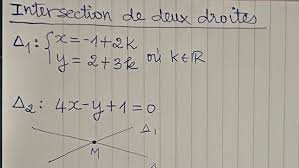 Intersection de deux droites
Δ₁: { x = -1 + 2k
y = 2 + 3k où k ∈ ℝ
Δ₂: 4x - y + 1 = 0
Δ₁
M